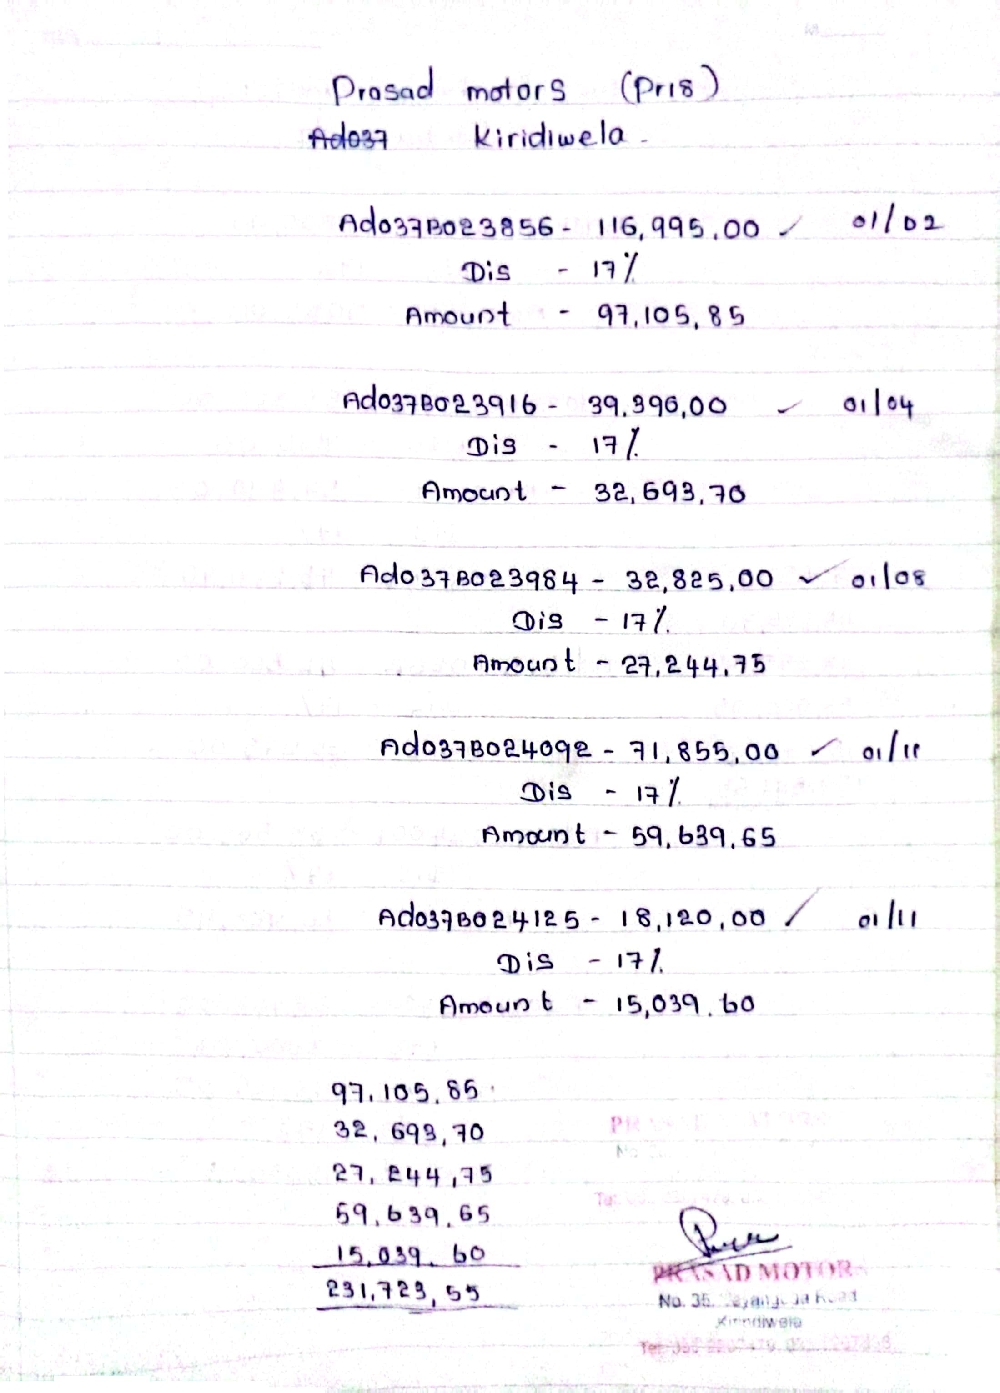 Prasad motors (Pr18)
Ado37 Kiridiwela -
Ado37B023856 - 116,995.00 ✓ 01/02
Dis - 17%
Amount - 97,105,85
Ado37B023916 - 39,390,00 ✓ 01/04
Dis - 17%
Amount - 32,693,70
Ado37B023984 - 32,825,00 ✓ 01/08
Dis - 17%
Amount - 27,244.75
Ado37B024092 - 71,855,00 ✓ 01/11
Dis - 17%
Amount - 59,639.65
Ado37B024125 - 18,120,00 ✓ 01/11
Dis - 17%
Amount - 15,039.60
97,105.85
32,693,70
27,244,75
59,639.65
15,039.60
231,723,55
PRASAD MOTORS
No. 35. Road
Kirindiwela
Tel: